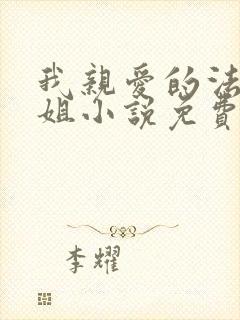 我親愛的法
姐小説免費
李耀